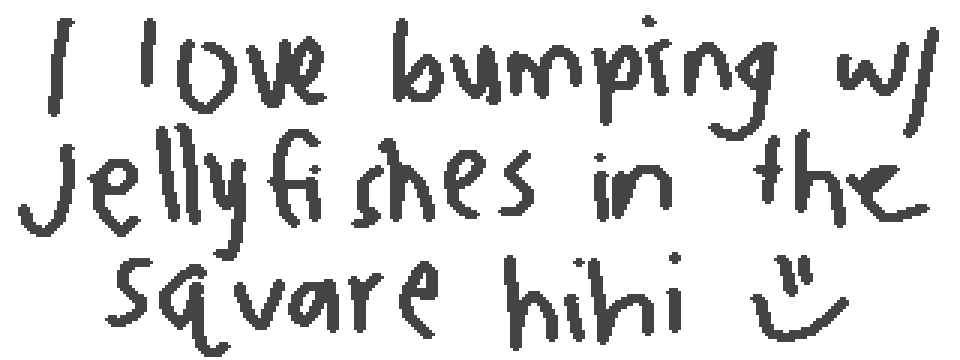 I love bumping w/
Jellyfishes in the
square hihi